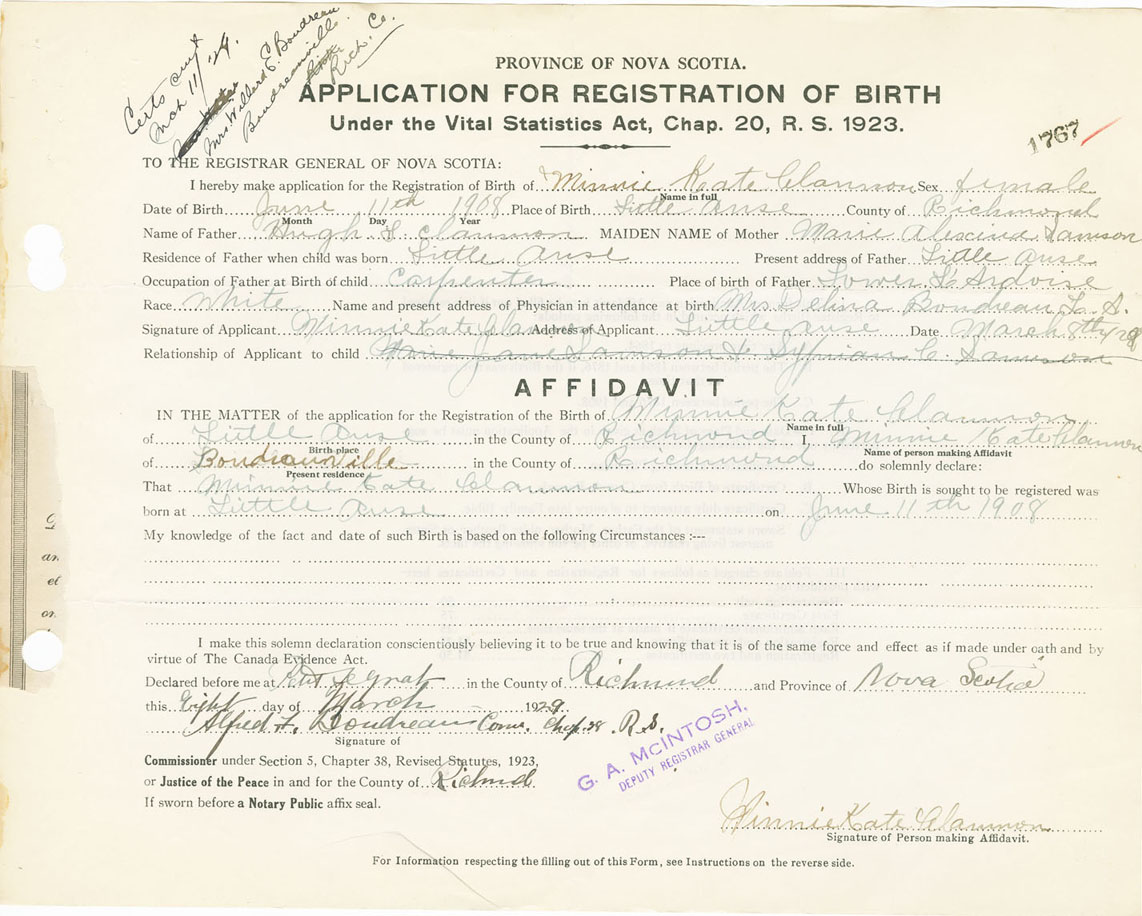 Certs sent
Mch 11/29.
Mrs Willard E. Boudreau
Boudreauville
Rich. Co.
PROVINCE OF NOVA SCOTIA.
APPLICATION FOR REGISTRATION OF BIRTH
Under the Vital Statistics Act, Chap. 20, R. S. 1923.
1767
TO THE REGISTRAR GENERAL OF NOVA SCOTIA:
I hereby make application for the Registration of Birth of Minnie Kate Clannon Sex female
Name in full
Date of Birth June 11th 1908 Place of Birth Little Anse County of Richmond
Month Day Year
Name of Father Hugh L Clannon MAIDEN NAME of Mother Marie Alexina Samson
Residence of Father when child was born Little Anse Present address of Father Little Anse
Occupation of Father at Birth of child Carpenter Place of birth of Father Lower L'Ardoise
Race White Name and present address of Physician in attendance at birth Mrs Delina Boudreau L. A.
Signature of Applicant Minnie Kate Clannon Address of Applicant Little Anse Date March 8th/29
Relationship of Applicant to child Marie Jane Samson & Syprian C. Samson
AFFIDAVIT
IN THE MATTER of the application for the Registration of the Birth of Minnie Kate Clannon
Name in full
of Little Anse in the County of Richmond I, Minnie Kate Clannon
Birth place Name of person making Affidavit
of Boudreauville in the County of Richmond do solemnly declare:
Present residence
That Minnie Kate Clannon Whose Birth is sought to be registered was
born at Little Anse on June 11th 1908
My knowledge of the fact and date of such Birth is based on the following Circumstances :---
I make this solemn declaration conscientiously believing it to be true and knowing that it is of the same force and effect as if made under oath and by
virtue of The Canada Evidence Act.
Declared before me at Petit de Grat in the County of Richmond and Province of Nova Scotia
this Eight day of March 1929
Alfred F. Boudreau Com. Chap. 38 R.S.
Signature of
Commissioner under Section 5, Chapter 38, Revised Statutes, 1923,
or Justice of the Peace in and for the County of Richmd
If sworn before a Notary Public affix seal.
G. A. McINTOSH,
DEPUTY REGISTRAR GENERAL
Minnie Kate Clannon
Signature of Person making Affidavit.
For Information respecting the filling out of this Form, see Instructions on the reverse side.